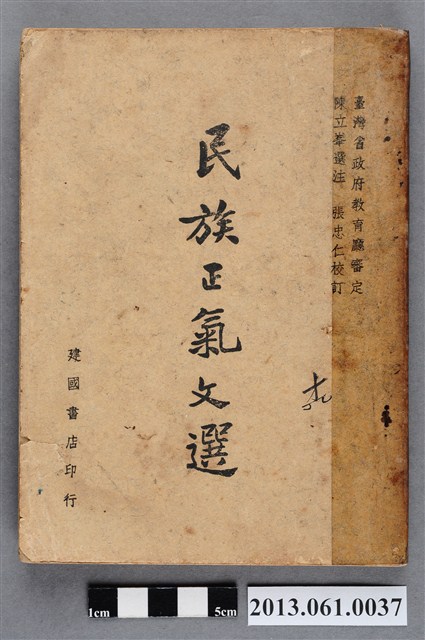 臺灣省政府教育廳審定
陳立峯選注 張忠仁校訂
民族正氣文選
建國書店印行
1cm 5cm
2013.061.0037